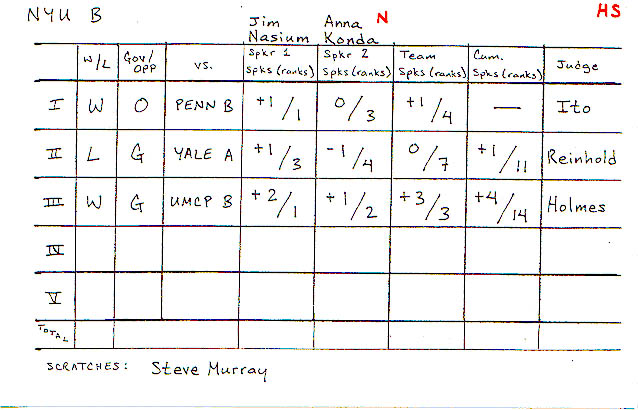 NYU B Jim Anna N HS
Nasium Konda
W/L Gov/OPP vs. Spkr 1 Spks (ranks) Spkr 2 Spks (ranks) Team Spks (ranks) Cum. Spks (ranks) Judge
I W O PENN B +1/1 0/3 +1/4 — Ito
II L G YALE A +1/3 -1/4 0/7 +1/11 Reinhold
III W G UMCP B +2/1 +1/2 +3/3 +4/14 Holmes
IV
V
TOTAL
SCRATCHES: Steve Murray